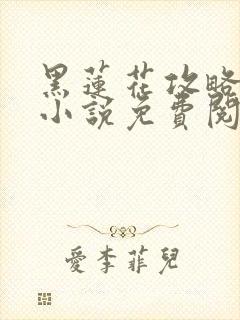 黑蓮花攻略
小說免費閱
愛李菲兒